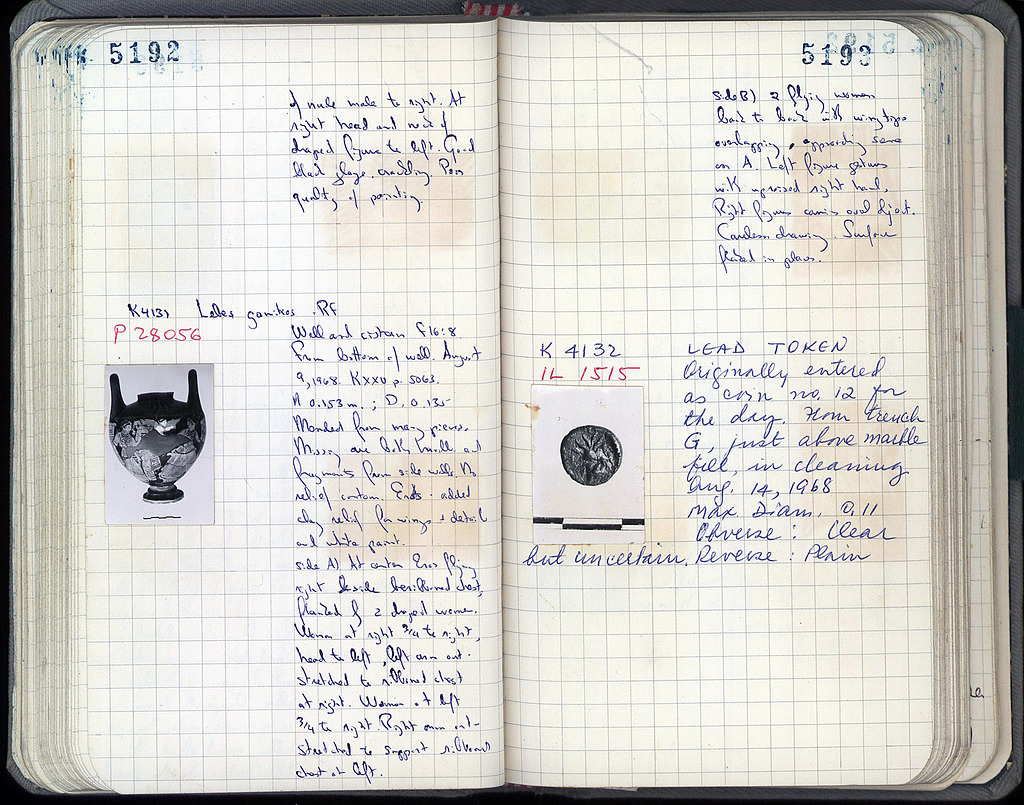 5192
of nude male to right. At
right head and neck of
draped figure to left. Good
black glaze, crackling. Poor
quality of painting.
K4131 Lebes gamikos. Rf
P 28056
Well and cistern F16:8
From bottom of well. August
9, 1968. KXXV p. 5063.
H 0.153 m.; D. 0.135
Mended from many pieces.
Missing are both small and
fragments from side walls. No
relief contour. Eros added
clay relief for wings + detail
and white paint.
side A) At center Eros flying
right beside beribboned chest,
flanked by 2 draped women.
Woman at right 3/4 to right,
head to left, left arm out-
stretched to ribboned chest
at right. Woman at left
3/4 to right. Right arm out-
stretched to support ribboned
chest at left.
5193
side B) 2 flying women
back to back with wingtips
overlapping, approaching same
on A. Left figure gestures
with upraised right hand.
Right figure carries oval object.
Careless drawing. Surface
flaked in places.
K 4132 LEAD TOKEN
IL 1515
Originally entered
as coin no. 12 for
the day. From trench
G, just above marble
fill, in cleaning
Aug. 14, 1968
Max Diam. 0.11
Obverse: Clear
but uncertain. Reverse: Plain